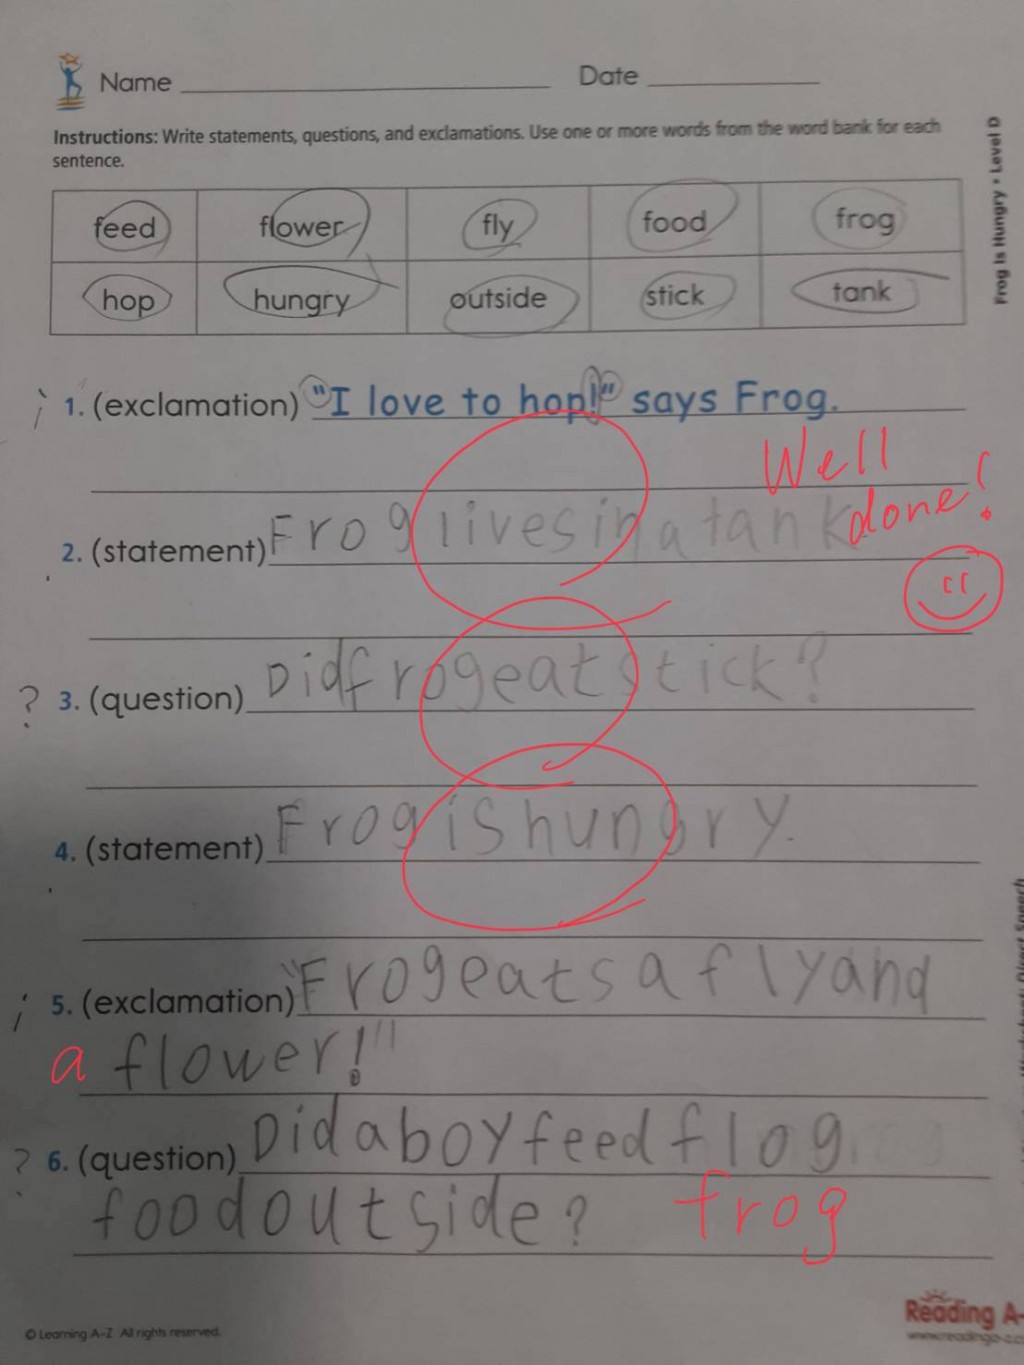 Name Date
Instructions: Write statements, questions, and exclamations. Use one or more words from the word bank for each
sentence.
feed flower fly food frog
hop hungry outside stick tank
Frog Is Hungry • Level D
¡ 1. (exclamation) "I love to hop!" says Frog.
Well
done!
2. (statement) Frog lives in a tank
? 3. (question) Did frog eat stick?
4. (statement) Frog is hungry.
¡ 5. (exclamation) "Frog eats a fly and
a flower!"
? 6. (question) Did a boy feed flog
food outside? frog
© Learning A–Z All rights reserved.
Reading A-